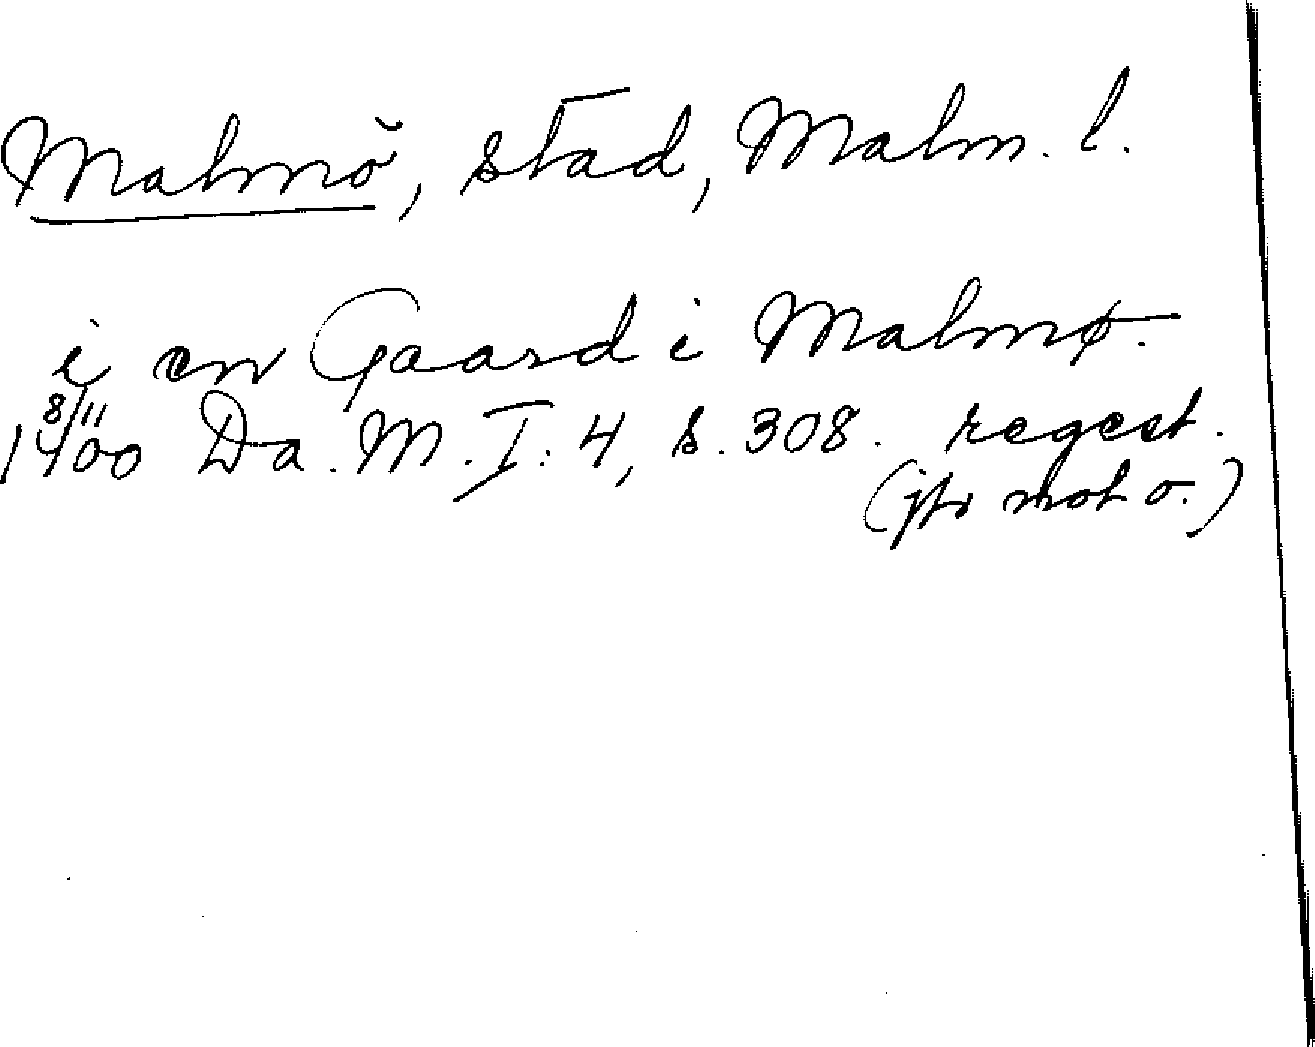 Malmö, stad, Malm. l.
i en Gaard i Malmø.
8/11 1400 Da. M. I: 4, s. 308. regest.
(jfr mot o.)